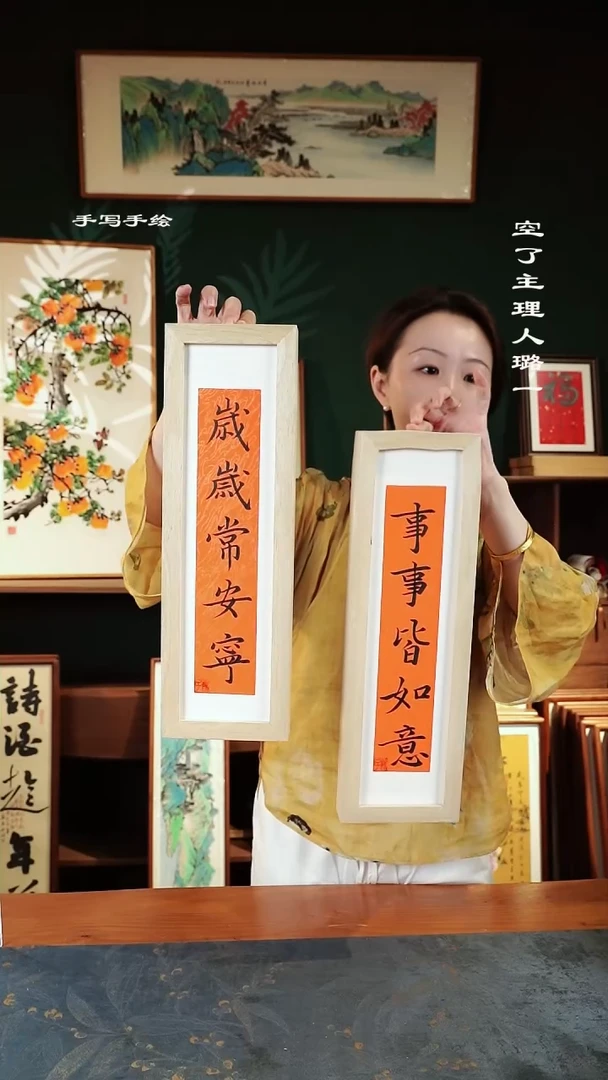 手写手绘
空了主理人璐一
歲歲常安寧
事事皆如意
福
詩酒趁年